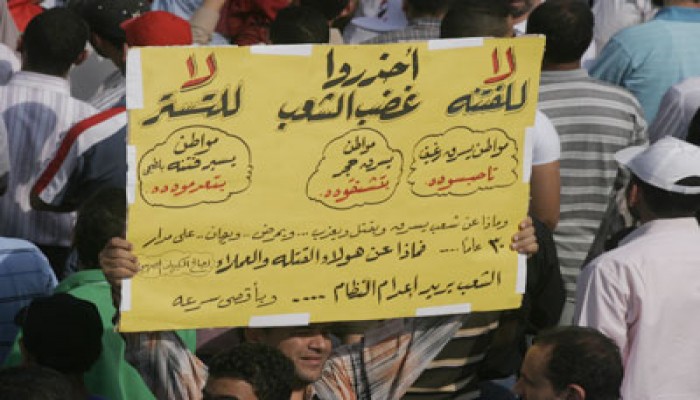 لا للفتنه
أحذروا غضب الشعب
لا للتستر
مواطن يسرق رغيف
تاحبسووو
مواطن يسرق حجر
تشنقووو
مواطن يسير فتنه
يتعدمووو
وماذا عن شعب يسرق ويقتل ويعذب ... ويمرض .. ويهان .. على مدار
٣٠ عاما .... فماذا عن هؤلاء القتله والعملاء
الشعب يريد إعدام النظام .... وبأقصى سرعه